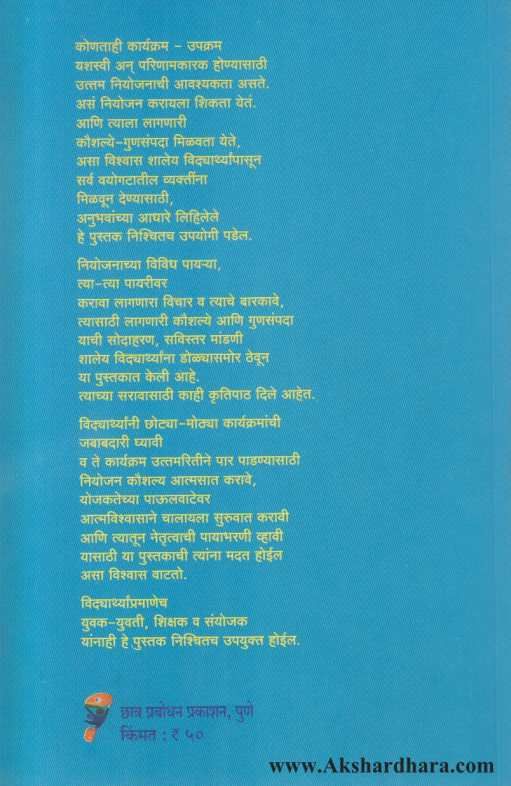 कोणताही कार्यक्रम – उपक्रम
यशस्वी अन् परिणामकारक होण्यासाठी
उत्तम नियोजनाची आवश्यकता असते.
असं नियोजन करायला शिकता येतं.
आणि त्याला लागणारी
कौशल्ये-गुणसंपदा मिळवता येते,
असा विश्वास शालेय विद्यार्थ्यांपासून
सर्व वयोगटातील व्यक्तींना
मिळवून देण्यासाठी,
अनुभवांच्या आधारे लिहिलेले
हे पुस्तक निश्चितच उपयोगी पडेल.
नियोजनाच्या विविध पायऱ्या,
त्या-त्या पायरीवर
करावा लागणारा विचार व त्याचे बारकावे,
त्यासाठी लागणारी कौशल्ये आणि गुणसंपदा
याची सोदाहरण, सविस्तर मांडणी
शालेय विद्यार्थ्यांना डोळ्यासमोर ठेवून
या पुस्तकात केली आहे.
त्याच्या सरावासाठी काही कृतिपाठ दिले आहेत.
विद्यार्थ्यांनी छोट्या-मोठ्या कार्यक्रमांची
जबाबदारी घ्यावी
व ते कार्यक्रम उत्तमरितीने पार पाडण्यासाठी
नियोजन कौशल्य आत्मसात करावे,
योजकतेच्या पाऊलवाटेवर
आत्मविश्वासाने चालायला सुरुवात करावी
आणि त्यातून नेतृत्वाची पायाभरणी व्हावी
यासाठी या पुस्तकाची त्यांना मदत होईल
असा विश्वास वाटतो.
विद्यार्थ्यांप्रमाणेच
युवक-युवती, शिक्षक व संयोजक
यांनाही हे पुस्तक निश्चितच उपयुक्त होईल.
छात्र प्रबोधन प्रकाशन, पुणे
किंमत : ₹ ५०
www.Akshardhara.com